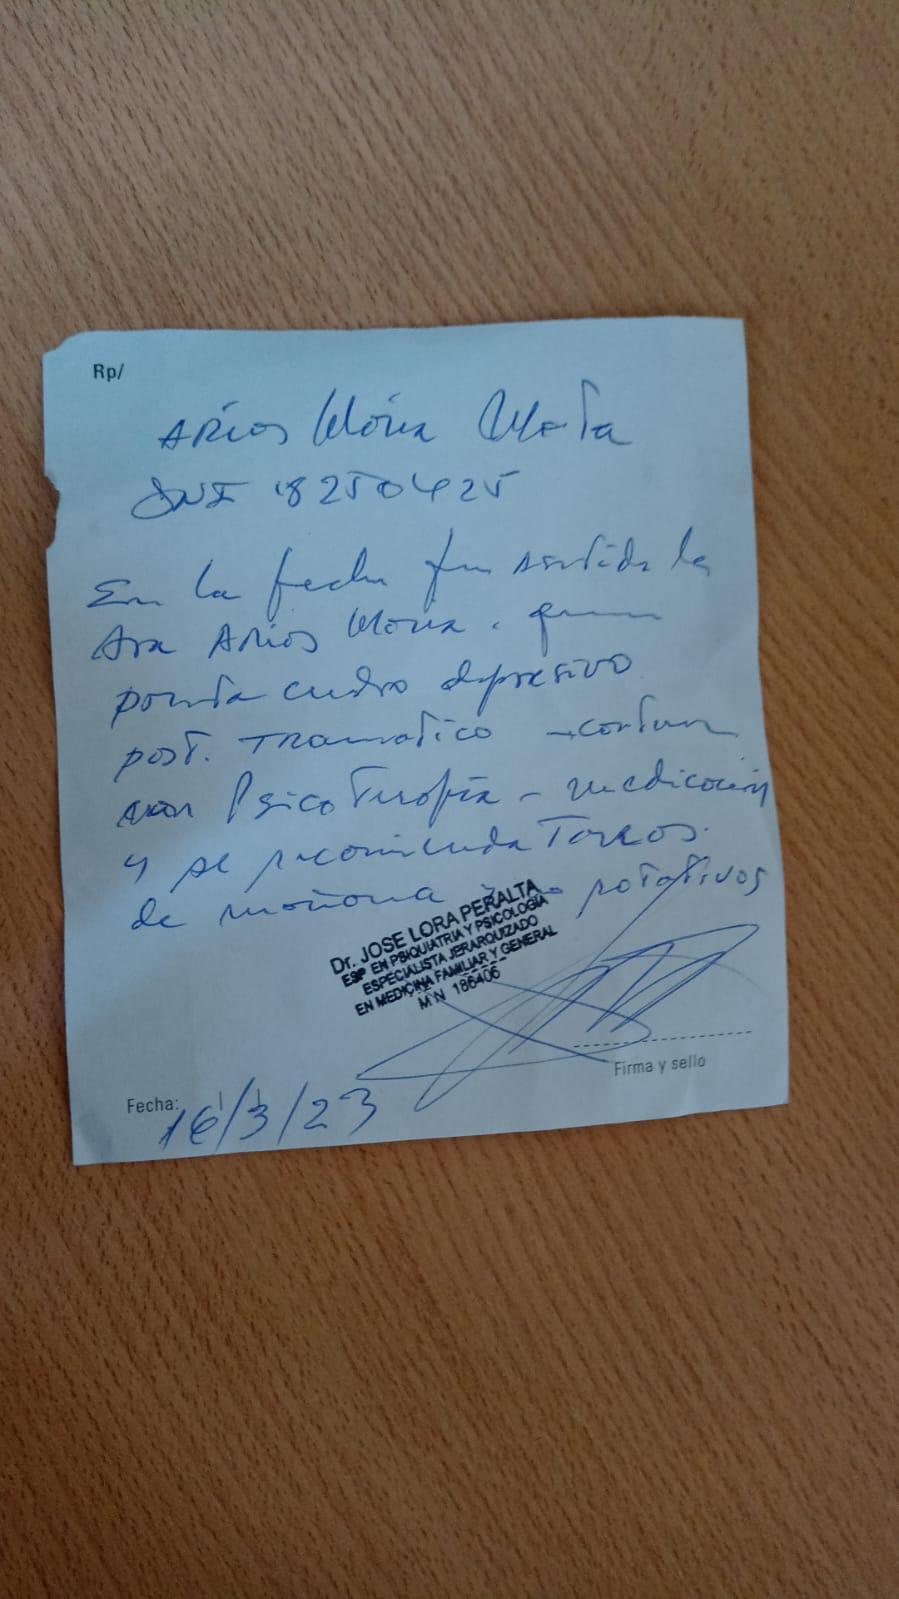 Rp/
Arios María Marta
DNI 18250425
En la fecha fue asistida la
Sra Arios María. quien
porta cuadro depresivo
post. Traumatico - contin
con PsicoTerapia - medicación
y se recomienda Tareas
de mañana no rotativos
Dr. JOSE LORA PERALTA
ESP EN PSIQUIATRIA Y PSICOLOGIA
ESPECIALISTA JERARQUIZADO
EN MEDICINA FAMILIAR Y GENERAL
MN 186406
Firma y sello
Fecha: 16/3/23